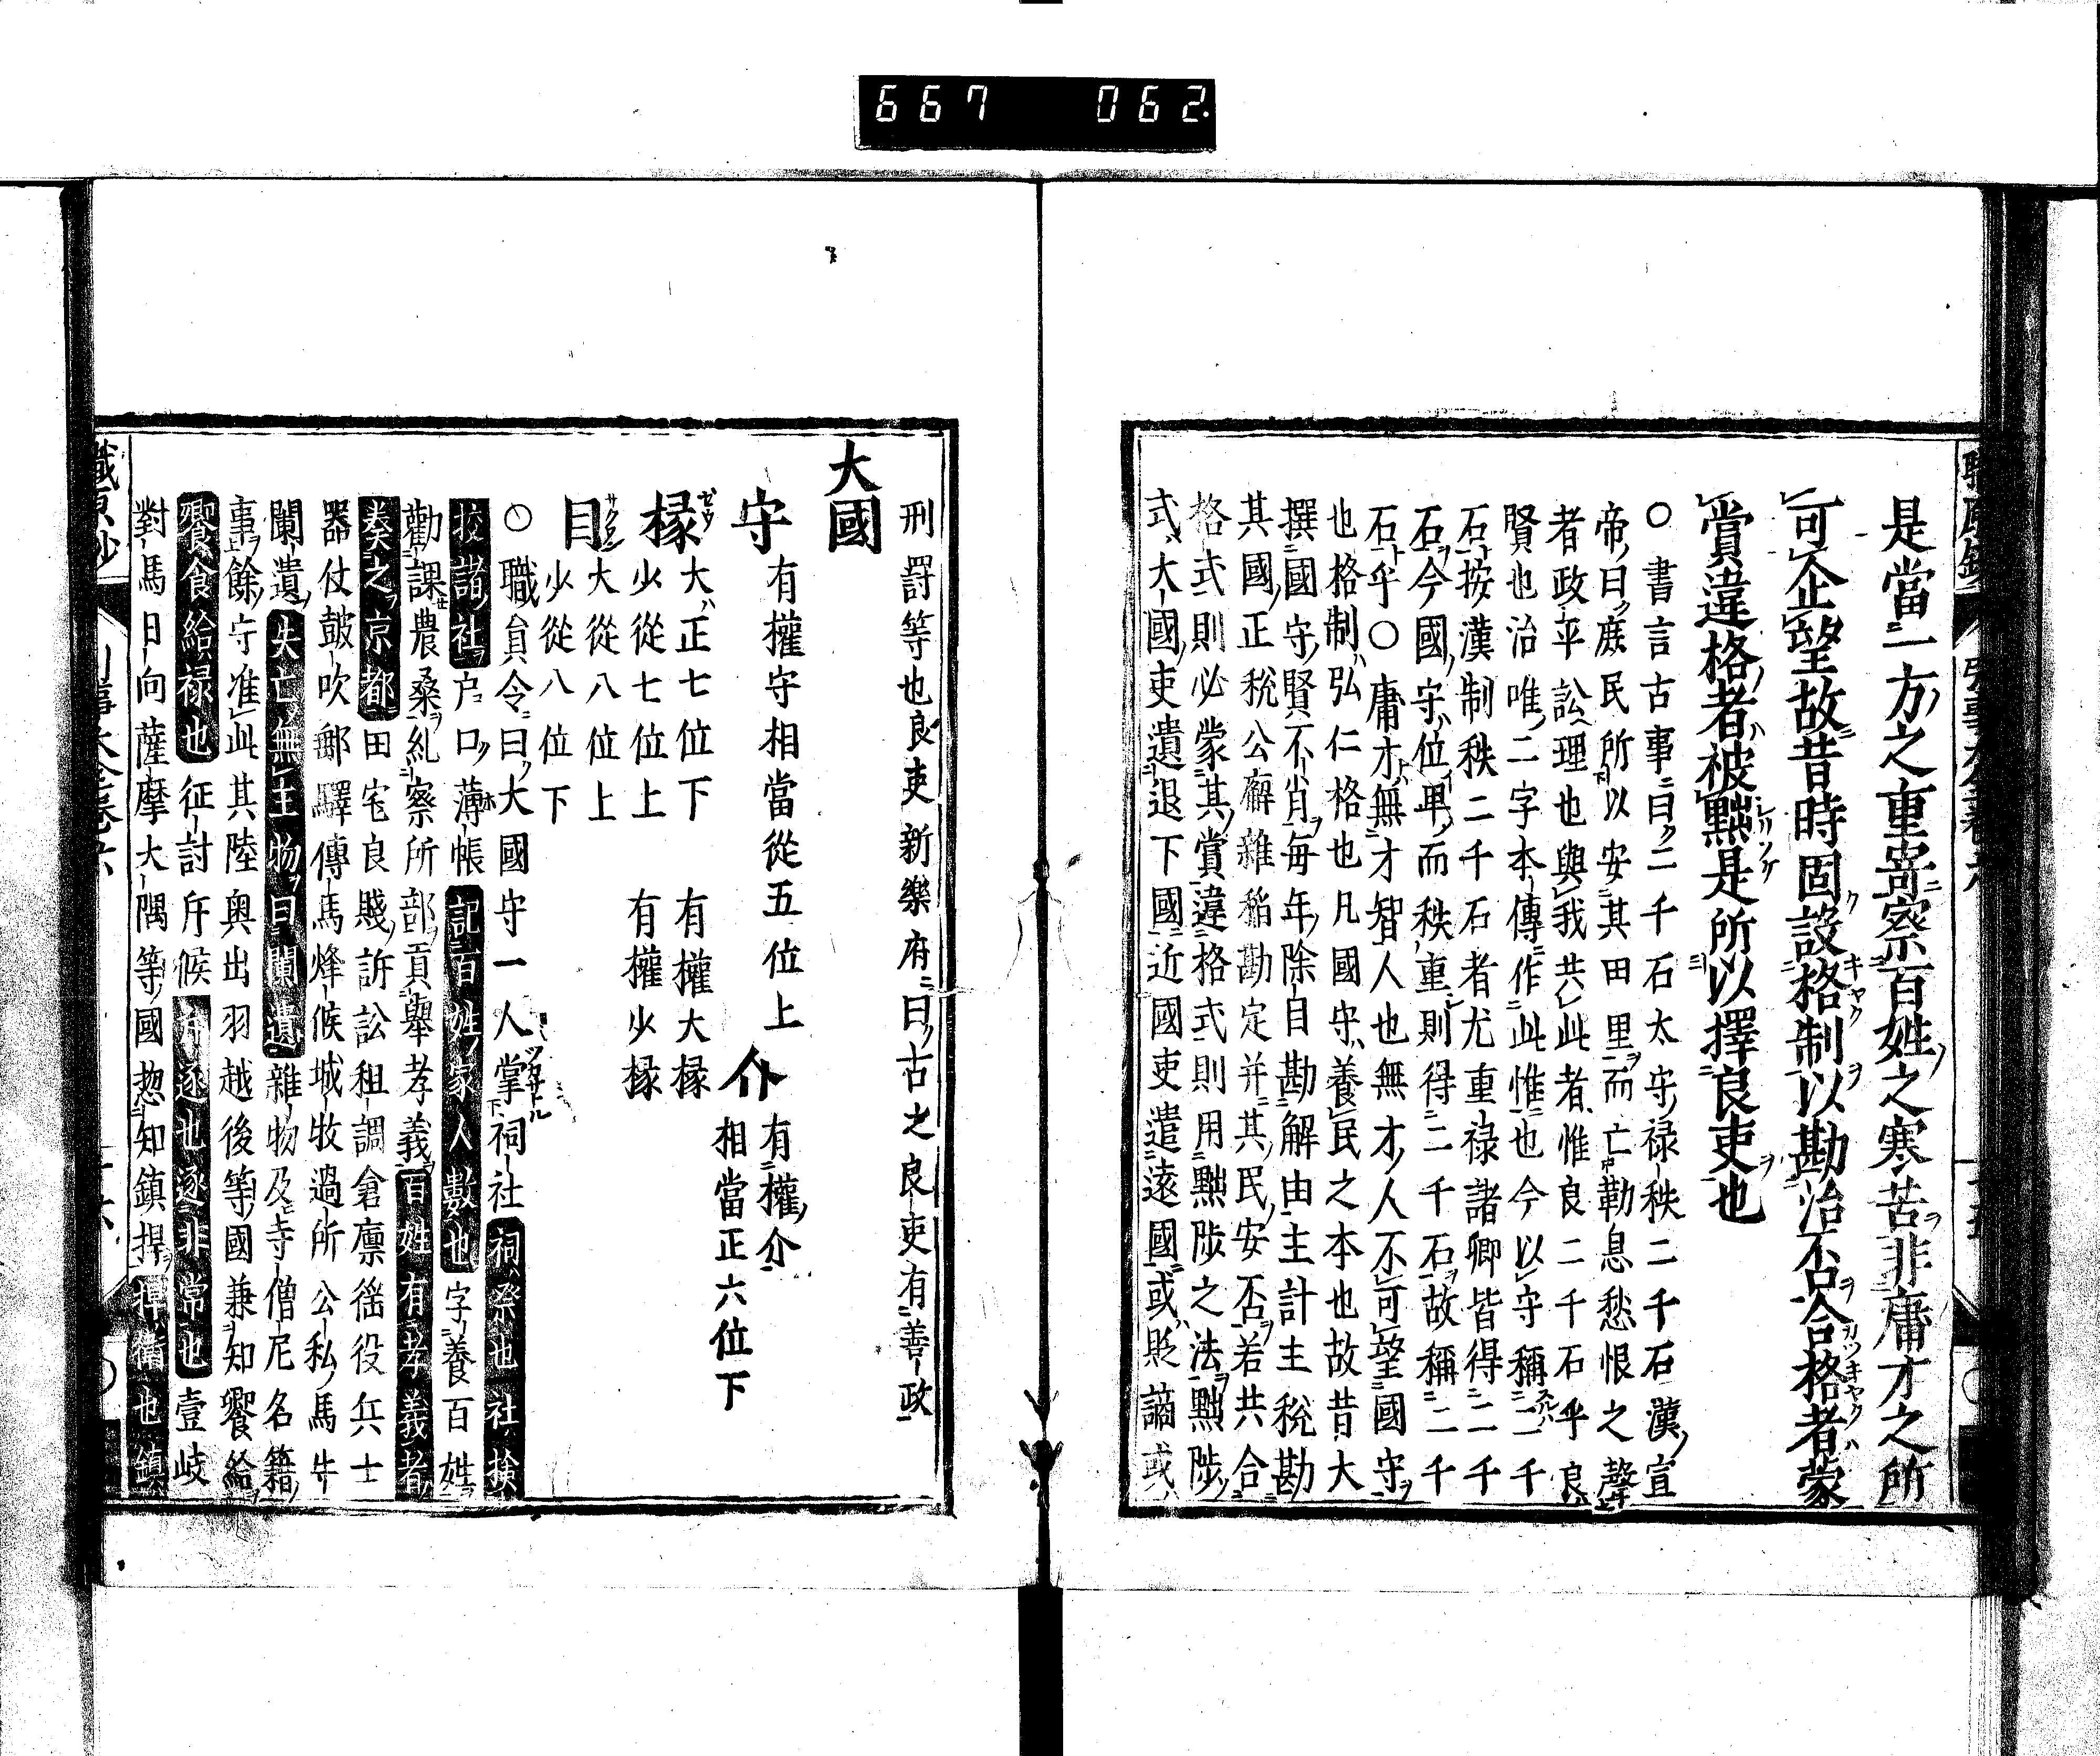 667 062
是當一方之重寄察百姓之寒苦非庸才之所
可企望故昔時固設格制以勘治不合格者蒙
賞違格者被黜是所以擇良吏也
○書言古事曰二千石太守禄秩二千石漢宣
帝曰庶民所以安其田里而亡勤息愁恨之聲
者政平訟理也與我共此者惟良二千石乎良
賢也治唯二字本傳作此惟也今以守稱二千
石按漢制秩二千石者尤重禄諸卿皆得二千
石今國守位卑而秩重則得二千石故稱二千
石乎○庸才無才智人也無才人不可望國守
也格制弘仁格也凡國守養民之本也故昔大
撰國守賢不肖毎年除目勘解由主計主税勘
其國正税公廨雜稲勘定并其民安否若共合
格式則必蒙其賞違格式則用黜陟之法黜陟
式大國吏遺退下國近國吏遣遠國或貶謫或
刑罸等也良吏新樂府曰古之良吏有善政
大國
守 有權守相當從五位上 介 有權介
相當正六位下
掾 大正七位下 有權大掾
少從七位上 有權少掾
目 大從八位上
少從八位下
○職員令曰大國守一人掌祠社祠祭也社検
挍諸社戸口薄帳記百姓家人數也字養百姓
勸課農桑糺察所部貢舉孝義百姓有孝義者
奏之京都田宅良賤訴訟租調倉廪徭役兵士
器仗皷吹郵驛傳馬烽候城牧過所公私馬牛
闌遺失亡無主物曰闌遺雜物及寺僧尼名籍
事餘守准此其陸奥出羽越後等國兼知饗給
饗食給禄也征討斥候斥逐也逐非常也壹岐
對馬日向薩摩大隅等國惣知鎮捍捍衛也鎮